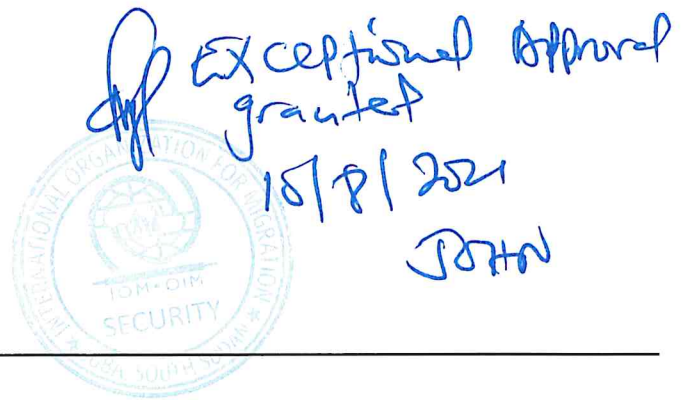 Exceptional Approval
granted
10/8/2021
JOHN
INTERNATIONAL ORGANIZATION FOR MIGRATION
IOM • OIM
SECURITY
* JUBA, SOUTH SUDAN *